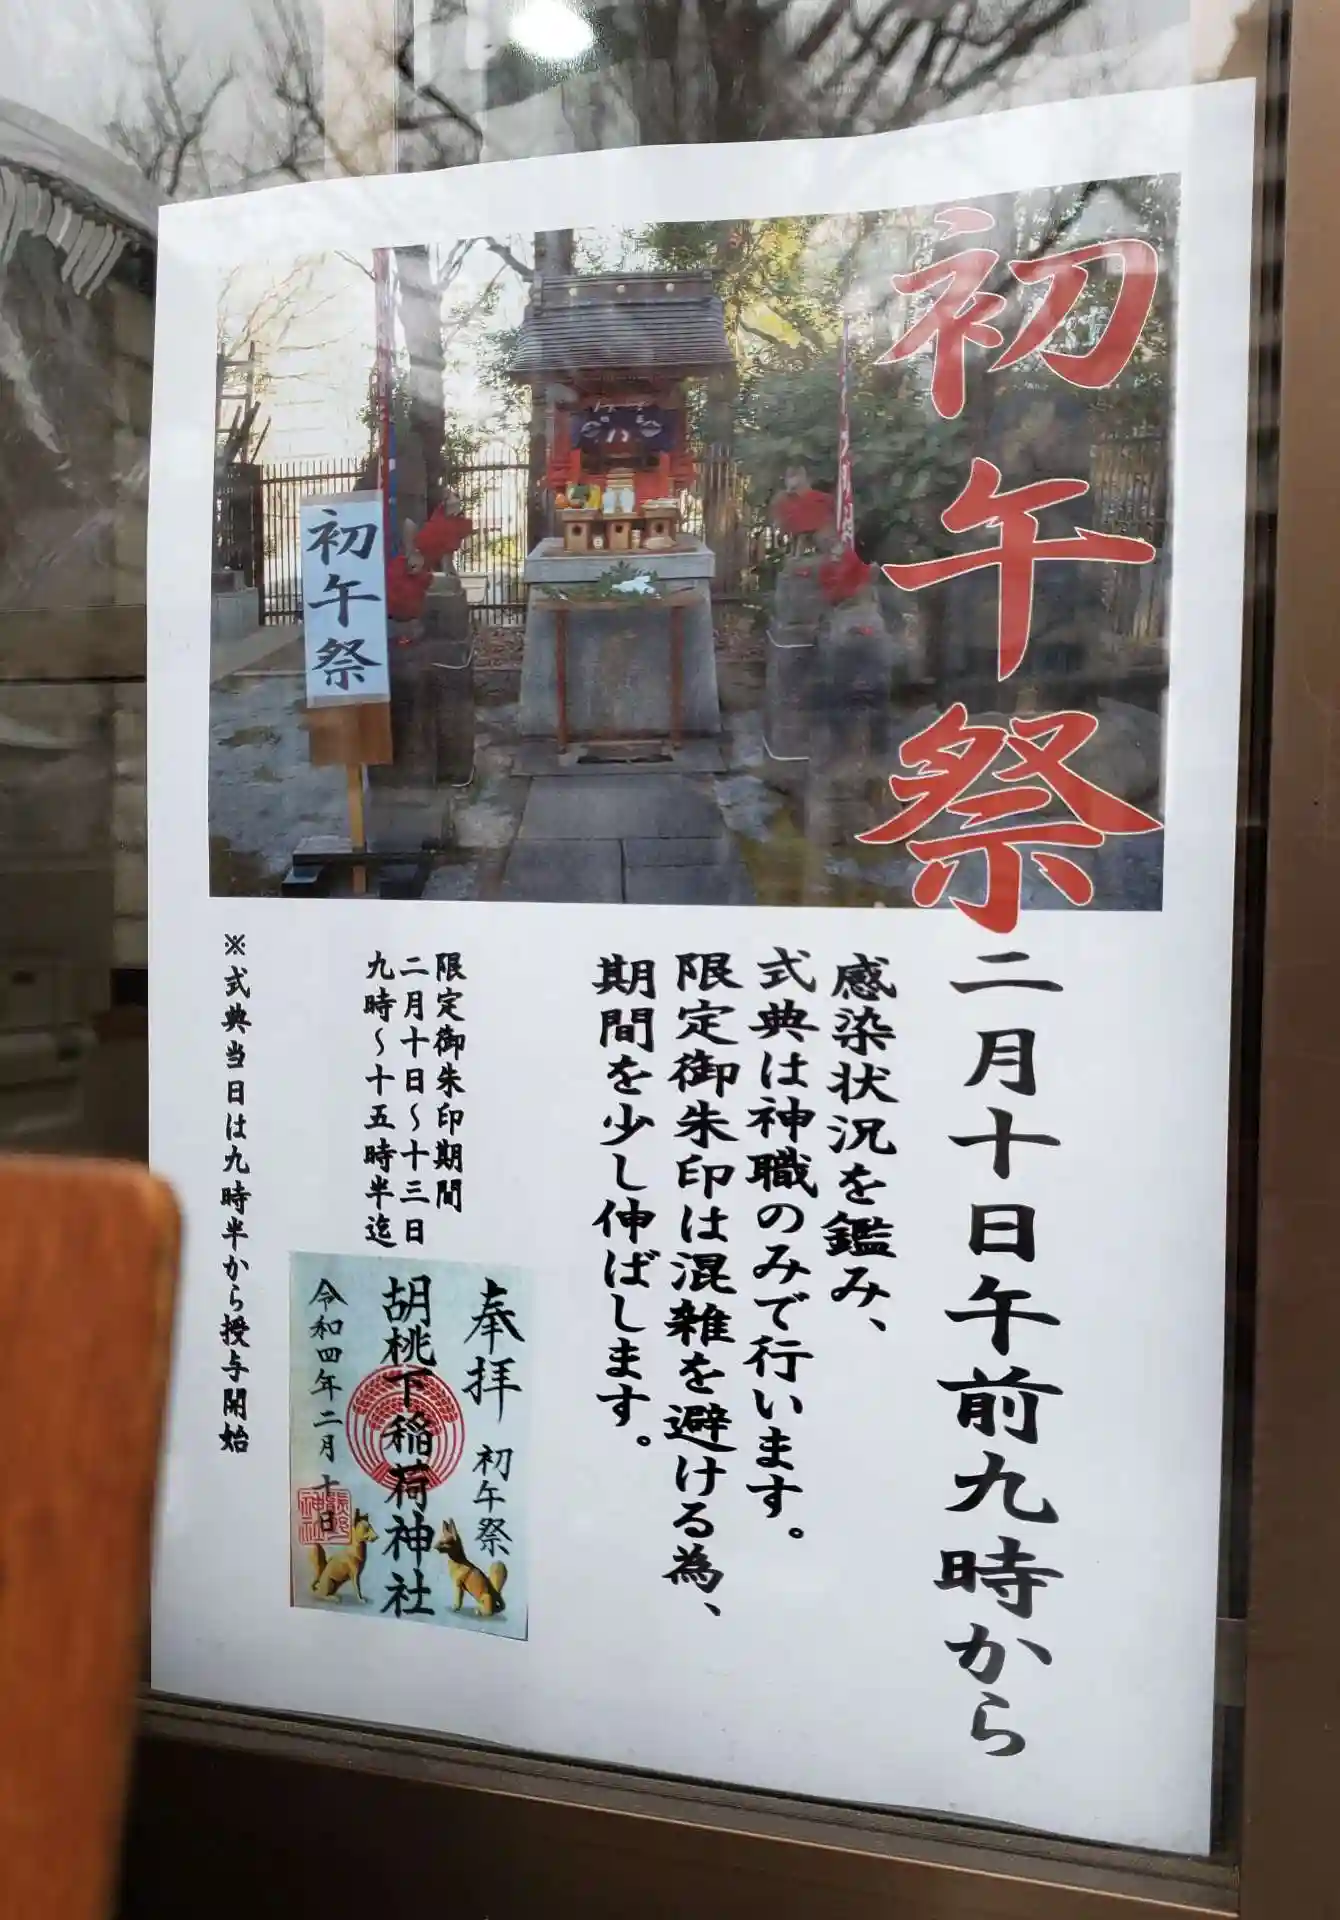 初午祭
初午祭
二月十日午前九時から
感染状況を鑑み、
式典は神職のみで行います。
限定御朱印は混雑を避ける為、
期間を少し伸ばします。
限定御朱印期間
二月十日～十三日
九時～十五時半迄
奉拝 初午祭
胡桃下稲荷神社
令和四年二月十日
※式典当日は九時半から授与開始